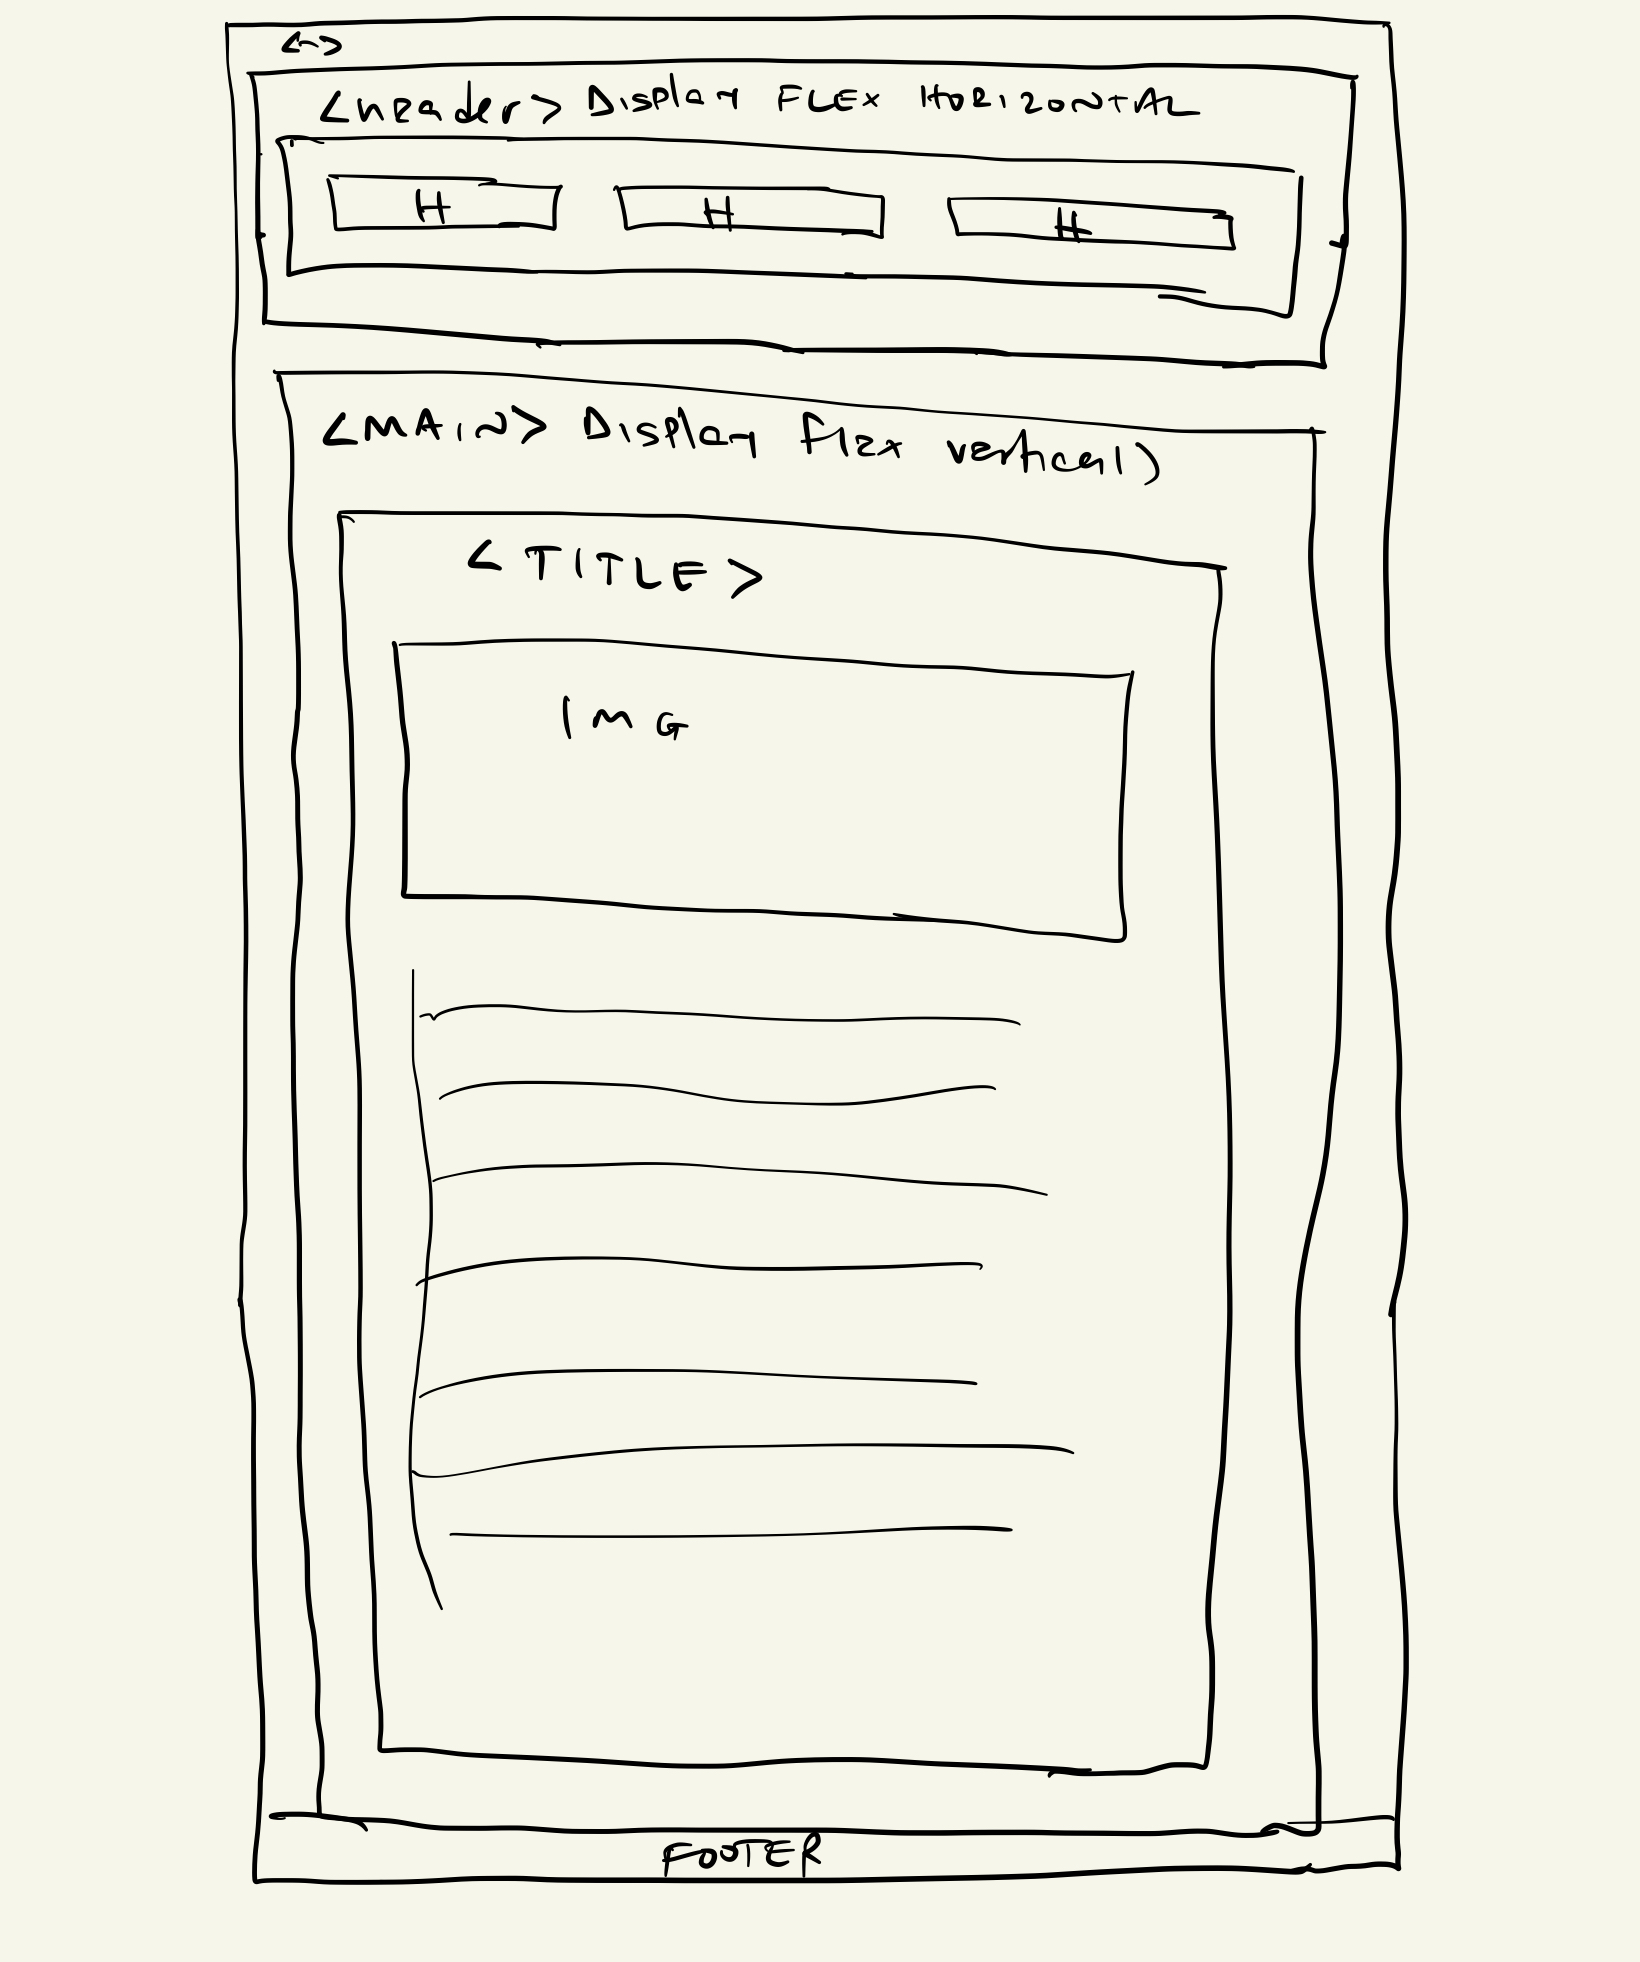 <->
<header> Display FLEX HORIZONTAL
H H H
<MAIN> Display flex vertical)
<TITLE>
IMG
FOOTER